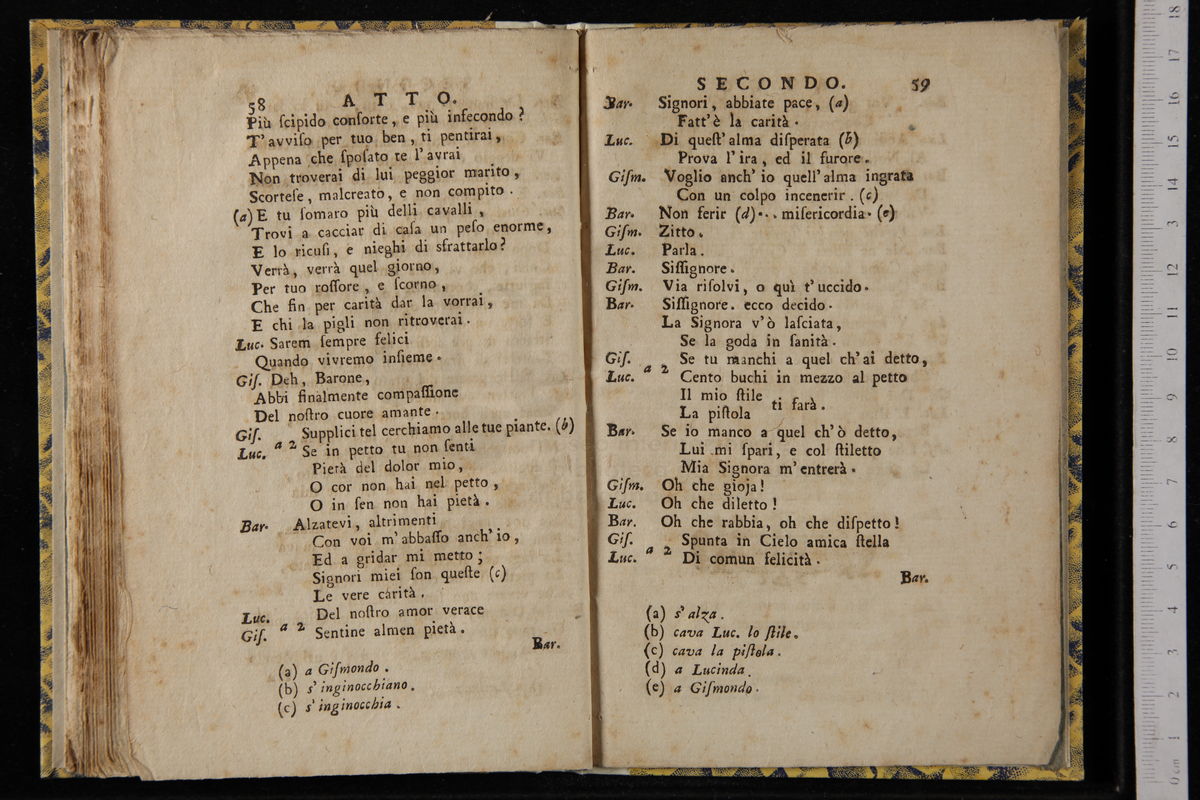 58 A T T O.
Più ſcipido conſorte, e più infecondo?
T'avviſo per tuo ben, ti pentirai,
Appena che ſpoſato te l'avrai
Non troverai di lui peggior marito,
Scorteſe, malcreato, e non compito.
(a) E tu ſomaro più delli cavalli,
Trovi a cacciar di caſa un peſo enorme,
E lo ricuſi, e nieghi di sfrattarlo?
Verrà, verrà quel giorno,
Per tuo roſſore, e ſcorno,
Che fin per carità dar la vorrai,
E chi la pigli non ritroverai.
Luc. Sarem ſempre felici
Quando vivremo inſieme.
Giſ. Deh, Barone,
Abbi finalmente compaſſione
Del noſtro cuore amante.
Giſ. a 2 Supplici tel cerchiamo alle tue piante. (b)
Luc. Se in petto tu non ſenti
Pietà del dolor mio,
O cor non hai nel petto,
O in ſen non hai pietà.
Bar. Alzatevi, altrimenti
Con voi m'abbaſſo anch'io,
Ed a gridar mi metto;
Signori miei ſon queſte (c)
Le vere carità.
Luc. Del noſtro amor verace
Giſ. a 2 Sentine almen pietà.
Bar.
(a) a Giſmondo.
(b) s'inginocchiano.
(c) s'inginocchia.
SECONDO. 59
Bar. Signori, abbiate pace, (a)
Fatt'è la carità.
Luc. Di queſt'alma diſperata (b)
Prova l'ira, ed il furore.
Giſm. Voglio anch'io quell'alma ingrata
Con un colpo incenerir. (c)
Bar. Non ferir (d)... miſericordia. (e)
Giſm. Zitto.
Luc. Parla.
Bar. Siſſignore.
Giſm. Via riſolvi, o quì t'uccido.
Bar. Siſſignore. ecco decido.
La Signora v'ò laſciata,
Se la goda in ſanità.
Giſ. a 2 Se tu manchi a quel ch'ai detto,
Luc. Cento buchi in mezzo al petto
Il mio ſtile
La piſtola ti farà.
Bar. Se io manco a quel ch'ò detto,
Lui mi ſpari, e col ſtiletto
Mia Signora m'entrerà.
Giſm. Oh che gioja!
Luc. Oh che diletto!
Bar. Oh che rabbia, oh che diſpetto!
Giſ. a 2 Spunta in Cielo amica ſtella
Luc. Di comun felicità.
Bar.
(a) s'alza.
(b) cava Luc. lo ſtile.
(c) cava la piſtola.
(d) a Lucinda.
(e) a Giſmondo.
0 cm 1 2 3 4 5 6 7 8 9 10 11 12 13 14 15 16 17 18